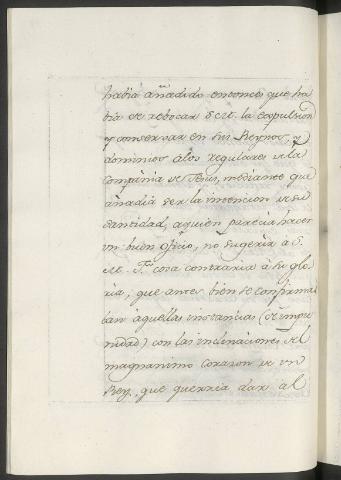 había añadido entonces que ha
bia de rebocar S. M. la expulsion
y conservar en sus Reynos, y
dominios alos regulares de la
Compañia de Jesus, mediante que
añadia ser la intencion de su
santidad, aquien parecia hacer
un buen oficio, no sugeria a S.
M. F. cosa contraria à su glo
ria; que antes bien se confirma
ban àquellas instancias (de impu
nidad) con las inclinaciones del
magnanimo corazon de un
Rey, que querria dar al